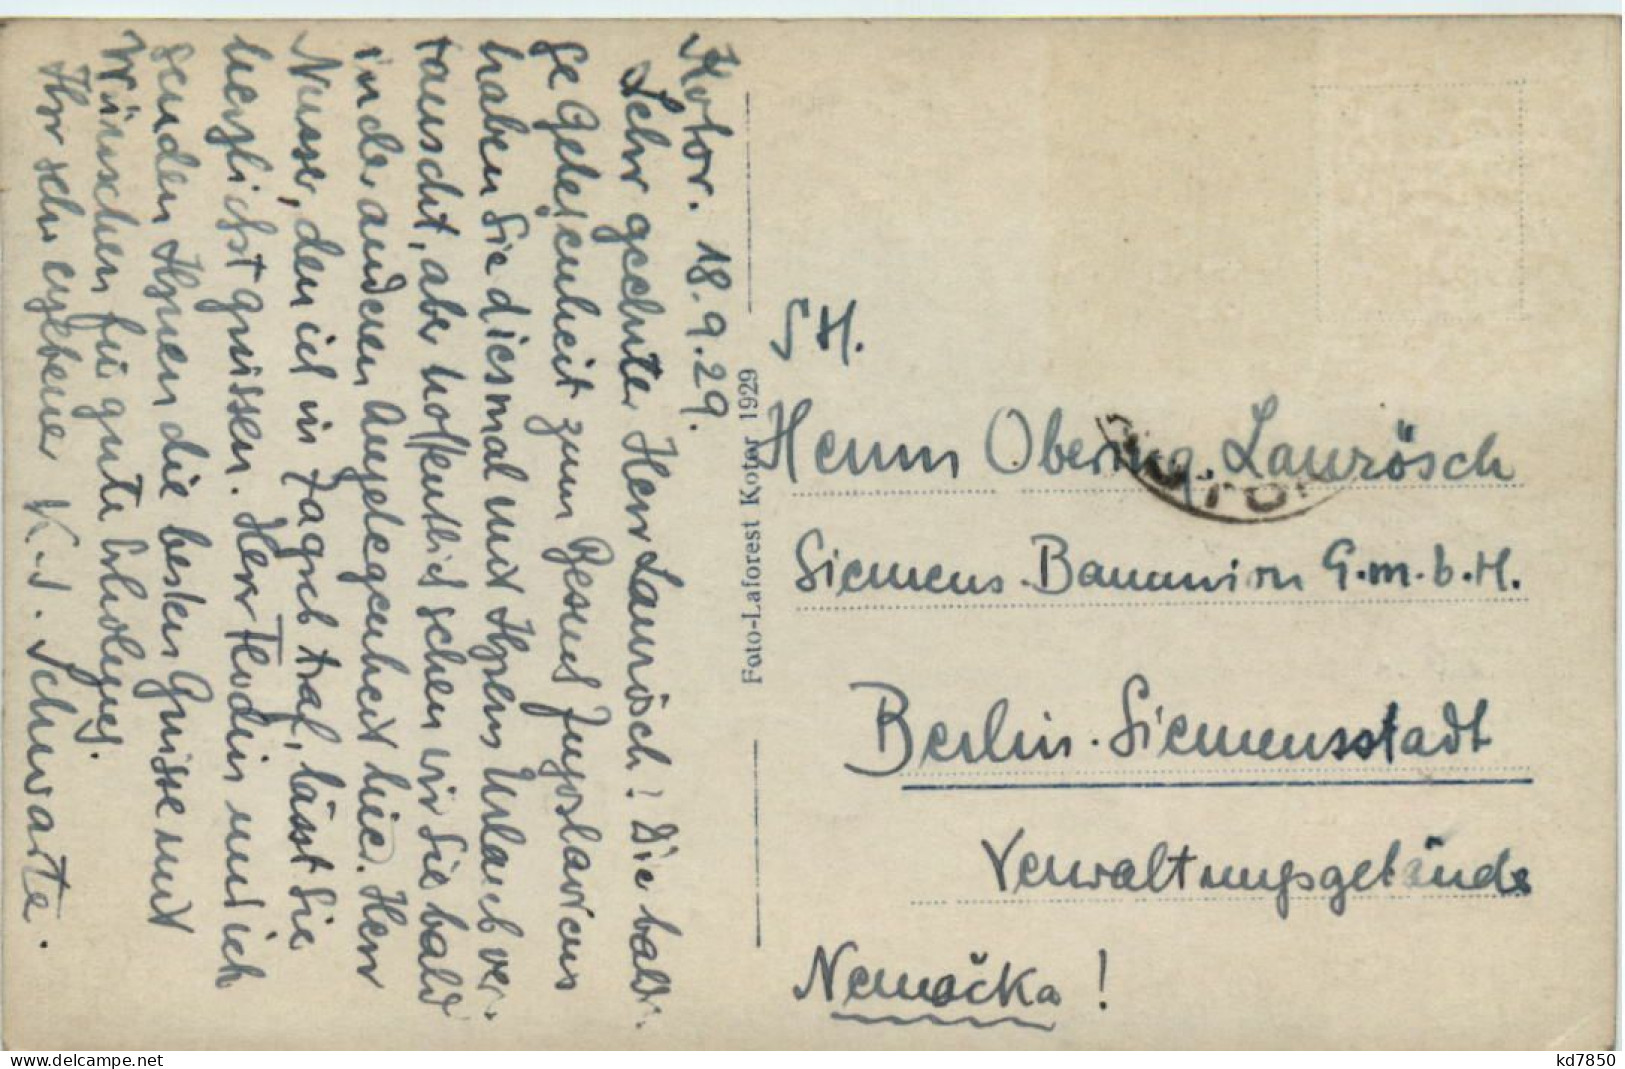 Kotor. 18.9.29.
Sehr geehrter Herr Laurösch! Die bald-
ge Gelegenheit zum Besuch Jugoslaviens
haben Sie diesmal mit Ihrem Urlaub ver-
tauscht, aber hoffentlich sehen wir Sie bald
in der anderen Angelegenheit hier. Herr
Nusser, den ich in Zagreb traf, lässt Sie
herzlichst grüssen. Herr Flodin und ich
senden Ihnen die besten Grüsse mit
Wünschen für gute Erholung.
Ihr sehr ergebener K. S. Schwarte.
Foto-Laforest Kotor 1929
S H.
Herrn Obering. Laurösch
Siemens-Bauunion G.m.b.H.
Berlin-Siemensstadt
Verwaltungsgebäude
Nemačka!
www.delcampe.net
kd7850